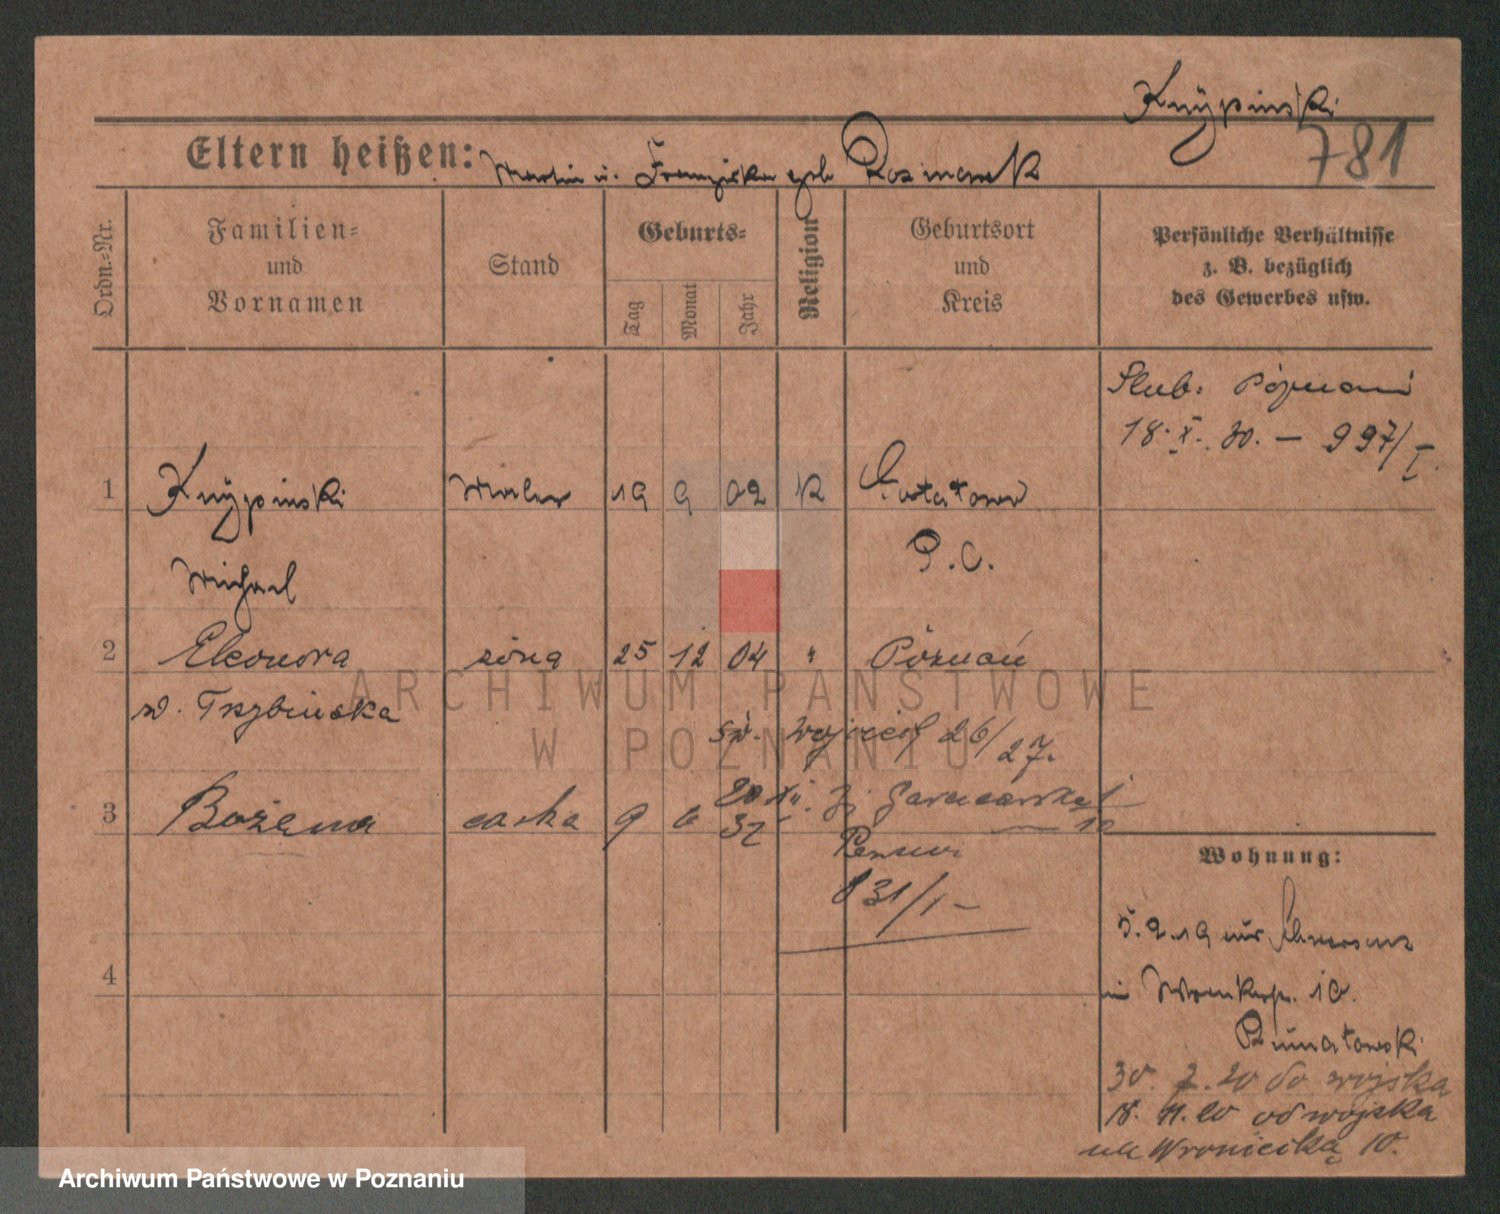 Knypinski
781
Eltern heißen: Martin u. Franziska geb. Kaczmarek
Ordn.-Nr.
Familien- und Vornamen
Stand
Geburts-
Tag
Monat
Jahr
Religion
Geburtsort und Kreis
Persönliche Verhältnisse
z. B. bezüglich
des Gewerbes usw.
Ślub: Poznań
18. X. 30. — 997/I.
1 Knypinski Maler 19 9 02 K
P. C.
Michael
2 Eleonora żona 25 12 04 " Poznań
z d. Trzybińska
św. Wojciech 26/27.
3 Bożena córka 9 6 32
20 XII.
831/1 —
Wohnung:
5. 2. 19
10.
4
30. 7. 20 do wojska
18. 11. 20 od wojska
ul. Wroniecka 10.
ARCHIWUM PAŃSTWOWE
W POZNANIU
Archiwum Państwowe w Poznaniu